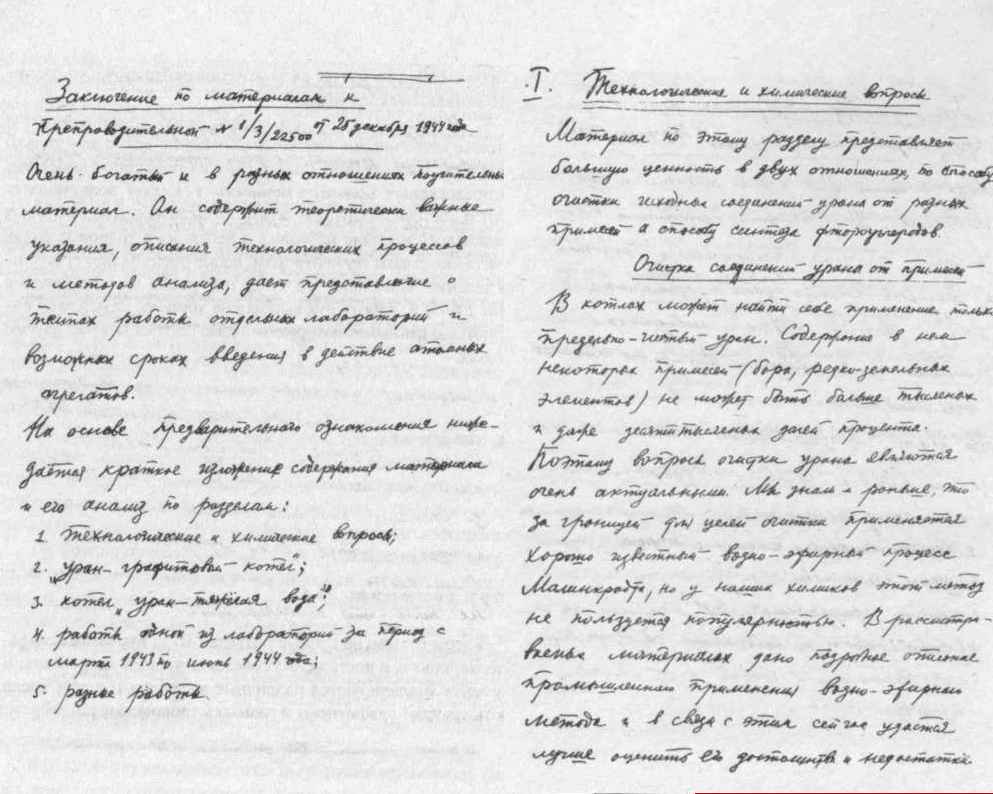 Заключение по материалам к
Препроводительной № 1/3/22500 от 25 декабря 1944 года
Очень богатый и в разных отношениях поучительный
материал. Он содержит теоретически важные
указания, описания технологических процессов
и методов анализа, дает представление о
темпах работы отдельных лабораторий и
возможных сроках введения в действие атомных
агрегатов.
На основе предварительного ознакомления ниже-
дается краткое изложение содержания материала
и его анализ по разделам:
1. Технологические и химические вопросы;
2. „уран-графитовый котел";
3. котел „уран-тяжелая вода";
4. работы одной из лабораторий за период с
марта 1943 по июнь 1944 года;
5. разные работы
I. Технологические и химические вопросы
Материал по этому разделу представляет
большую ценность в двух отношениях, по способу
очистки исходных соединений урана от разных
примесей и способу синтеза фтороуглеродов
Очистка соединений урана от примесей
В котлах может найти себе применение только
предельно-чистый уран. Содержание в нем
некоторых примесей (бора, редко-земельных
элементов) не может быть больше тысячных
и даже десятитысячных долей процента.
Поэтому вопросы очистки урана являются
очень актуальными. Мы знали и раньше, что
за границей для целей очистки применяется
хорошо известный водно-эфирный процесс
Малинкродта, но у наших химиков этот метод
не пользуется популярностью. В рассматри-
ваемых материалах дано подробное описание
промышленного применения водно-эфирного
метода и в связи с этим сейчас удастся
лучше оценить его достоинства и недостатки